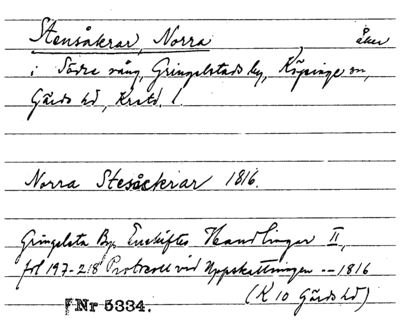 Stensåkrar, Norra åker
i Södra vång, Gringelstads by, Köpinge sn,
Gärds hd, Krstd. l.
Norra Stesåckrar 1816.
Gringelsta By. Enskiftes Handlingar II,
fol 197-218 Protocoll vid Uppskattningen -- 1816
(K 10 Gärds hd)
Nr 5334.